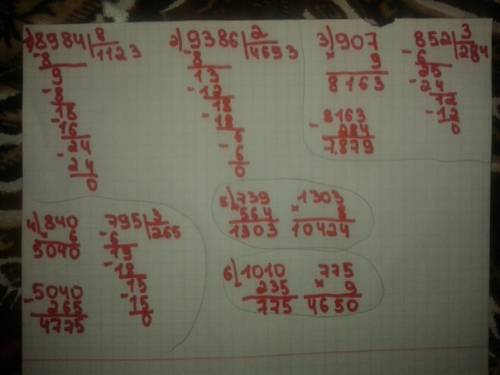 1) 8984 | 8
-8 1123
9
-8
18
-16
24
-24
0
2) 9386 | 2
-8 4693
13
-12
18
-18
6
-6
0
3) 907
× 9
8163
- 8163
284
7879
- 852 | 3
6 284
25
-24
12
-12
0
4) 840
× 6
5040
- 5040
265
4775
- 795 | 3
6 265
19
-18
15
-15
0
5) 739
564
1303
× 1303
8
10424
6) 1010
235
775
775
× 9
4650